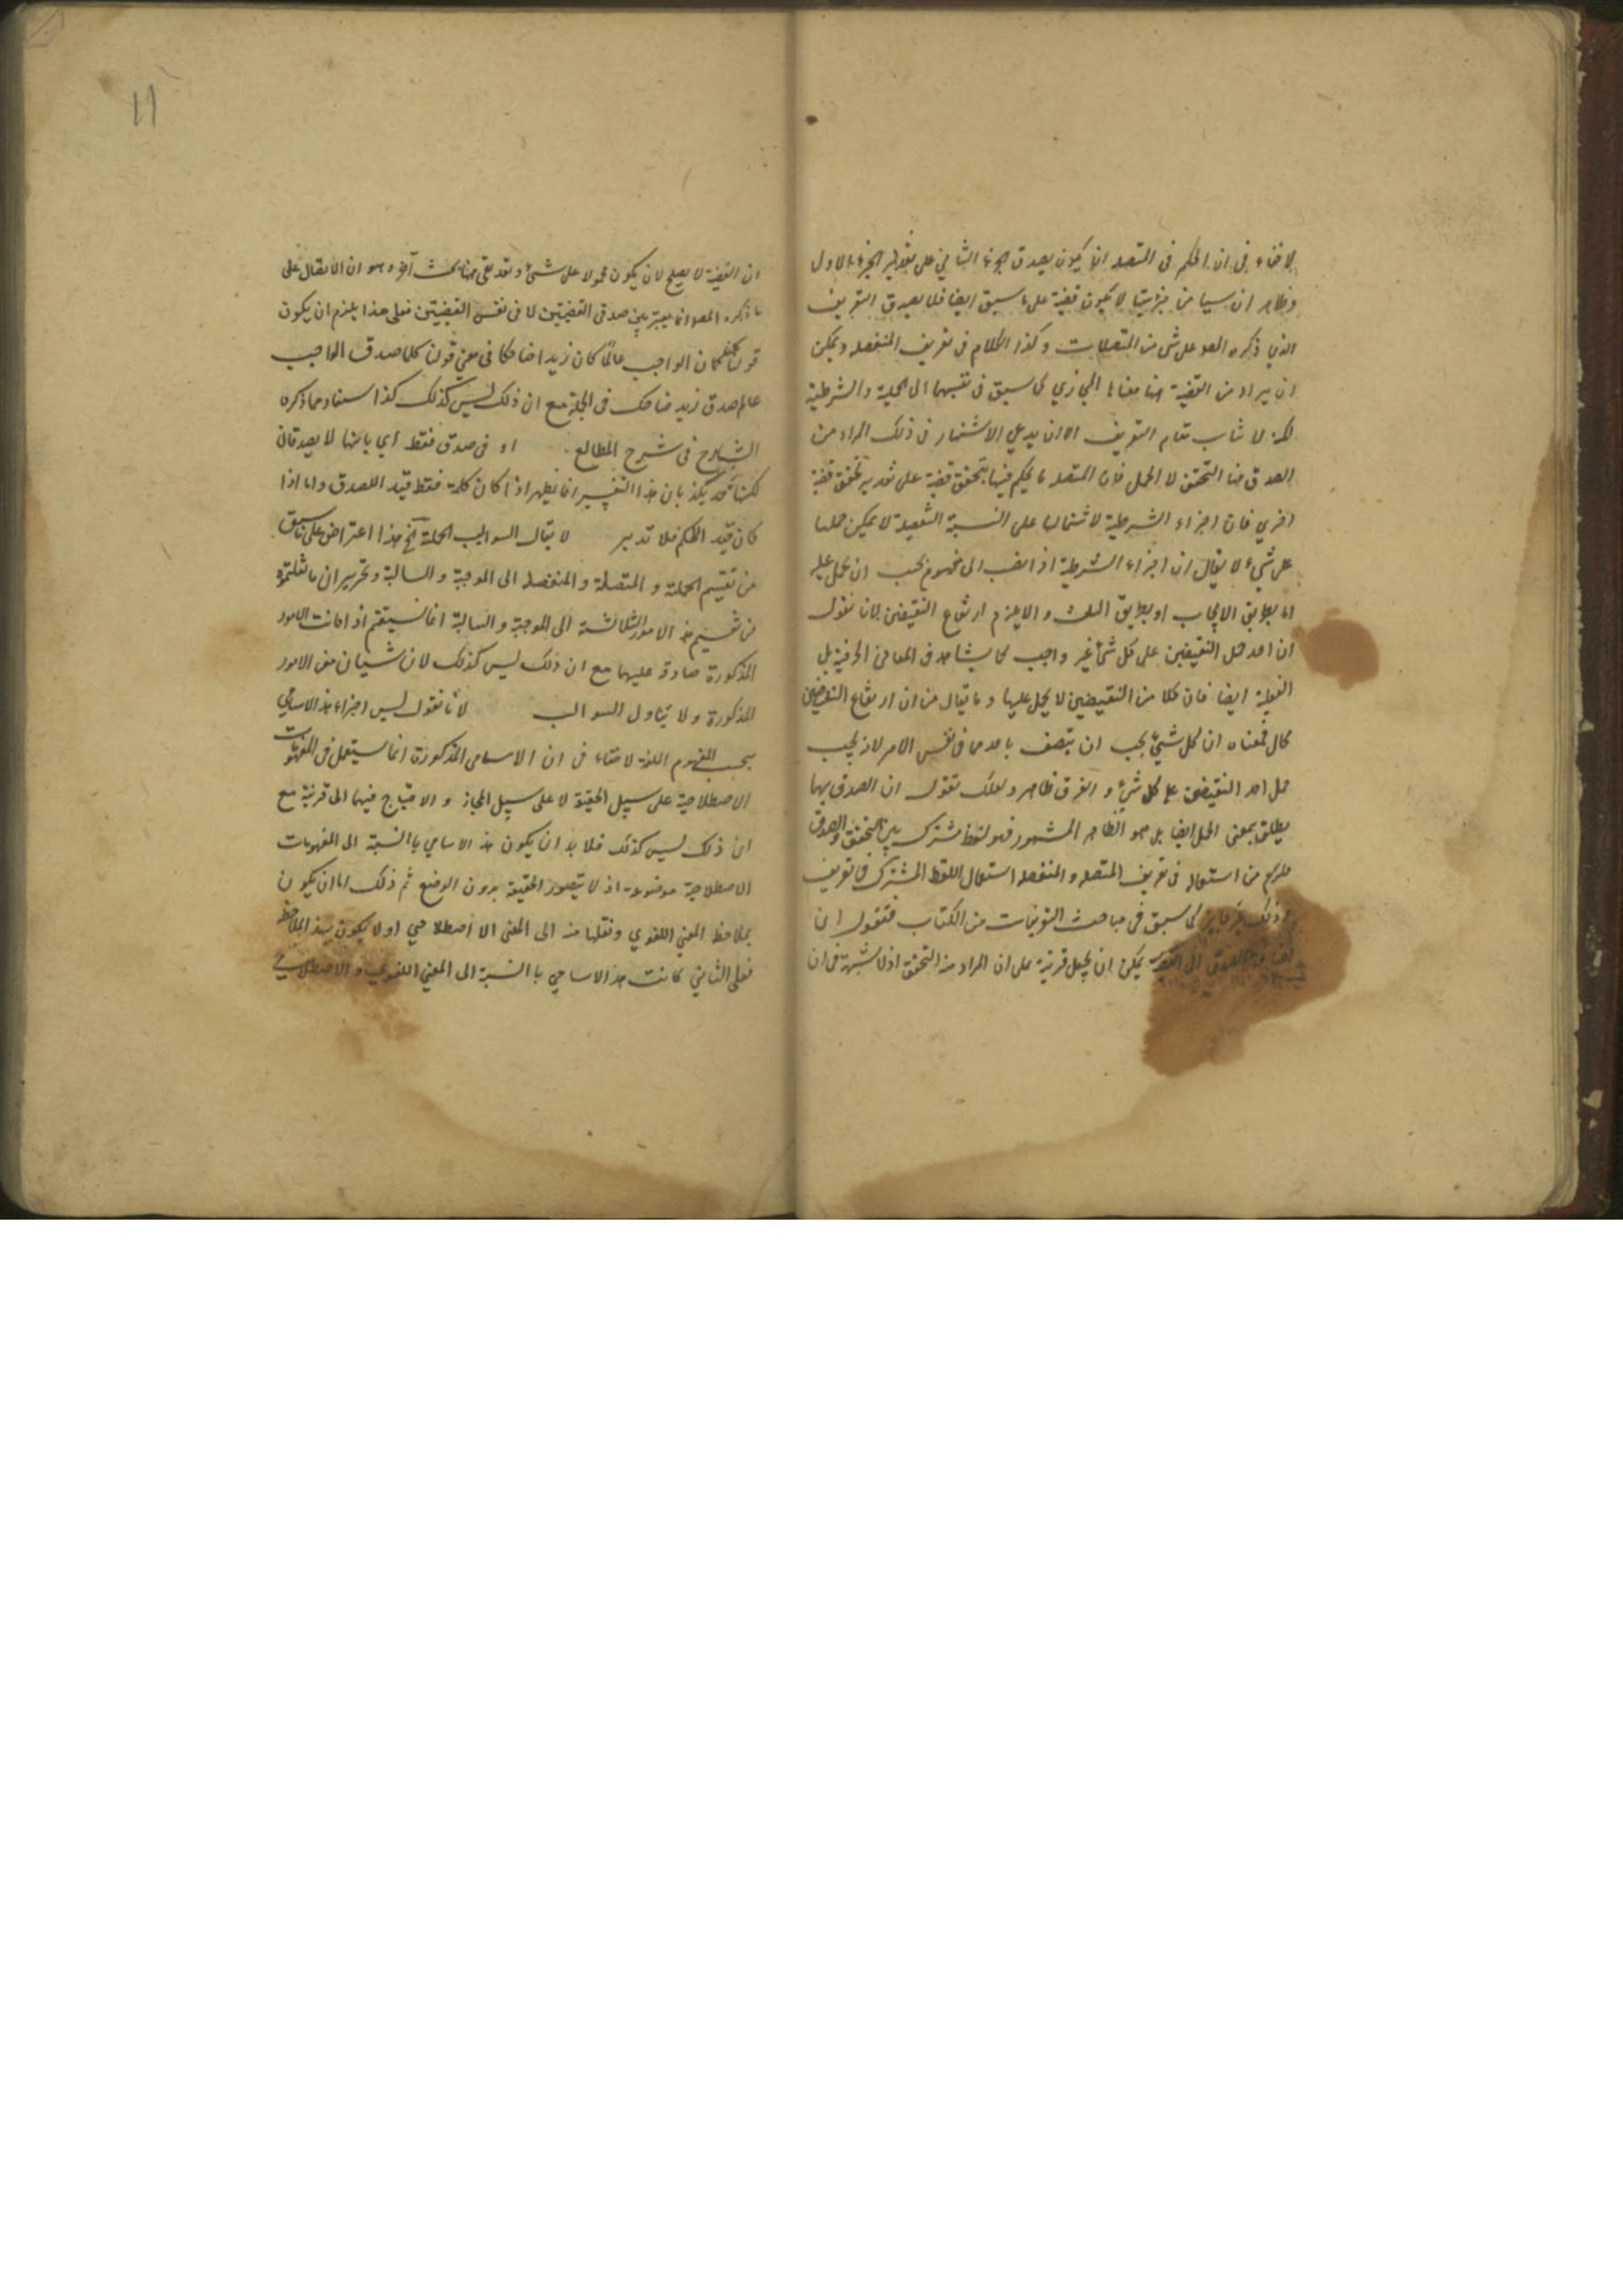 لا خفاء في ان الحكم في المتصله انما يكون بصدق الجزء الثاني على تقدير الجزء الاول
وظاهر ان شيئا من جزئيتها لا يكون قضية على ما سبق ايضا فلا يصدق التعريف
الذي ذكره المص على شئ من المتصلات وكذا الكلام في تعريف المنفصله ويمكن
ان يراد من القضية هنا معناها المجازي كما سبق في تقسيمها الى الحملية والشرطية
لكنه لا يناسب مقام التعريف الا ان يدعي الاشتهار في ذلك المراد من
الصدق هنا التحقق لا الحمل فان المتصله ما يحكم فيها بتحقق قضية على تقدير تحقق قضية
اخري فان اجزاء الشرطية لاشتمالها على النسبة التفصيلية لا يمكن حملها
على شئ لا يقال ان اجزاء الشرطية اذا نسب الى مفهوم يجب ان يحمل عليه
اما بطريق الايجاب او بطريق السلب والا يلزم ارتفاع النقيضين لانا نقول
ان احد النقيضين على كل شئ غير واجب كما يشاهد في المعاني الحرفية بل
الفعلية ايضا فان كلا من النقيضين لا يحمل عليها وما يقال من ان ارتفاع النقيضين
محال فمعناه ان كل شئ يجب ان يتصف باحدهما في نفس الامر لا انه يجب
حمل احد النقيضين على كل شئ والفرق ظاهر ولعلك تقول ان الصدق بها
يطلق بمعنى الحمل ايضا بل هو الظاهر المشهور فهو لفظ مشترك بين التحقق والصدق
فلزم من استعماله في تعريف المتصله والمنفصله استعمال اللفظ المشترك في تعريف
وذلك غير جايز كما سبق في مباحث التعريفات من الكتاب فنقول ان
الصدق الى يمكن ان يجعل قرينة على ان المراد منه التحقق اذ لا شبهة في ان
11
ان القضية لا يصلح لان يكون محمولا على شئ وقد بقي ههنا بحث آخر وهو ان الاتصال على
ما ذكره المص انما يعتبر بين صدقي القضيتين لا في نفس القضيتين فعلى هذا يلزم ان يكون
قولنا كلما كان الواجب عالما كان زيد ضاحكا في معنى قولنا كلما صدق الواجب
عالم صدق زيد ضاحك في الجملة مع ان ذلك ليس كذلك كذا استفاد مما ذكره
الشارح في شرح المطالع او في صدق فقط أي بانها لا يصدقان
لكنها قد يكذبان هذا التفسير انما يظهر اذا كان كلمة فقط قيد للصدق واما اذا
كان قيد الحكم فلا تدبر لا يقال السوالب الحملية الخ هذا اعتراض على ما سبق
من تقسيم الحملية و المتصلة و المنفصله الى الموجبة و السالبة وتحرير ان ما
من تقسيم هذه الامور الثلاثة الى الموجبة والسالبة انما يستقيم اذا كانت الامور
المذكورة صادقة عليهما مع ان ذلك ليس كذلك لان شيئان من الامور
المذكورة ولا يتناول السوالب لانا نقول ليس اجزاء هذه الاسامي
بحسب المفهوم اللغة لا خفاء في ان الاسامى المذكورة انما يستعمل في المفهومات
الاصطلاحية على سبيل الحقيقة لا على سبيل المجاز و الاحتياج فيها الى قرنية مع
ان ذلك ليس كذلك فلا بد ان يكون هذه الاسامي باالنسبة الى المفهومات
الاصطلاحية موضوعة اذ لا يتصور الحقيقة بدون الوضع ثم ذلك اما ان يكون
بملاحظة المعني اللغوي ونقلها منه الى المعنى الاصطلاحي او لا يكون بهذه الملاحظة
فعلى الثاني كانت هذه الاسامي باالنسبة الى المعنى اللغوي والاصطلاحي